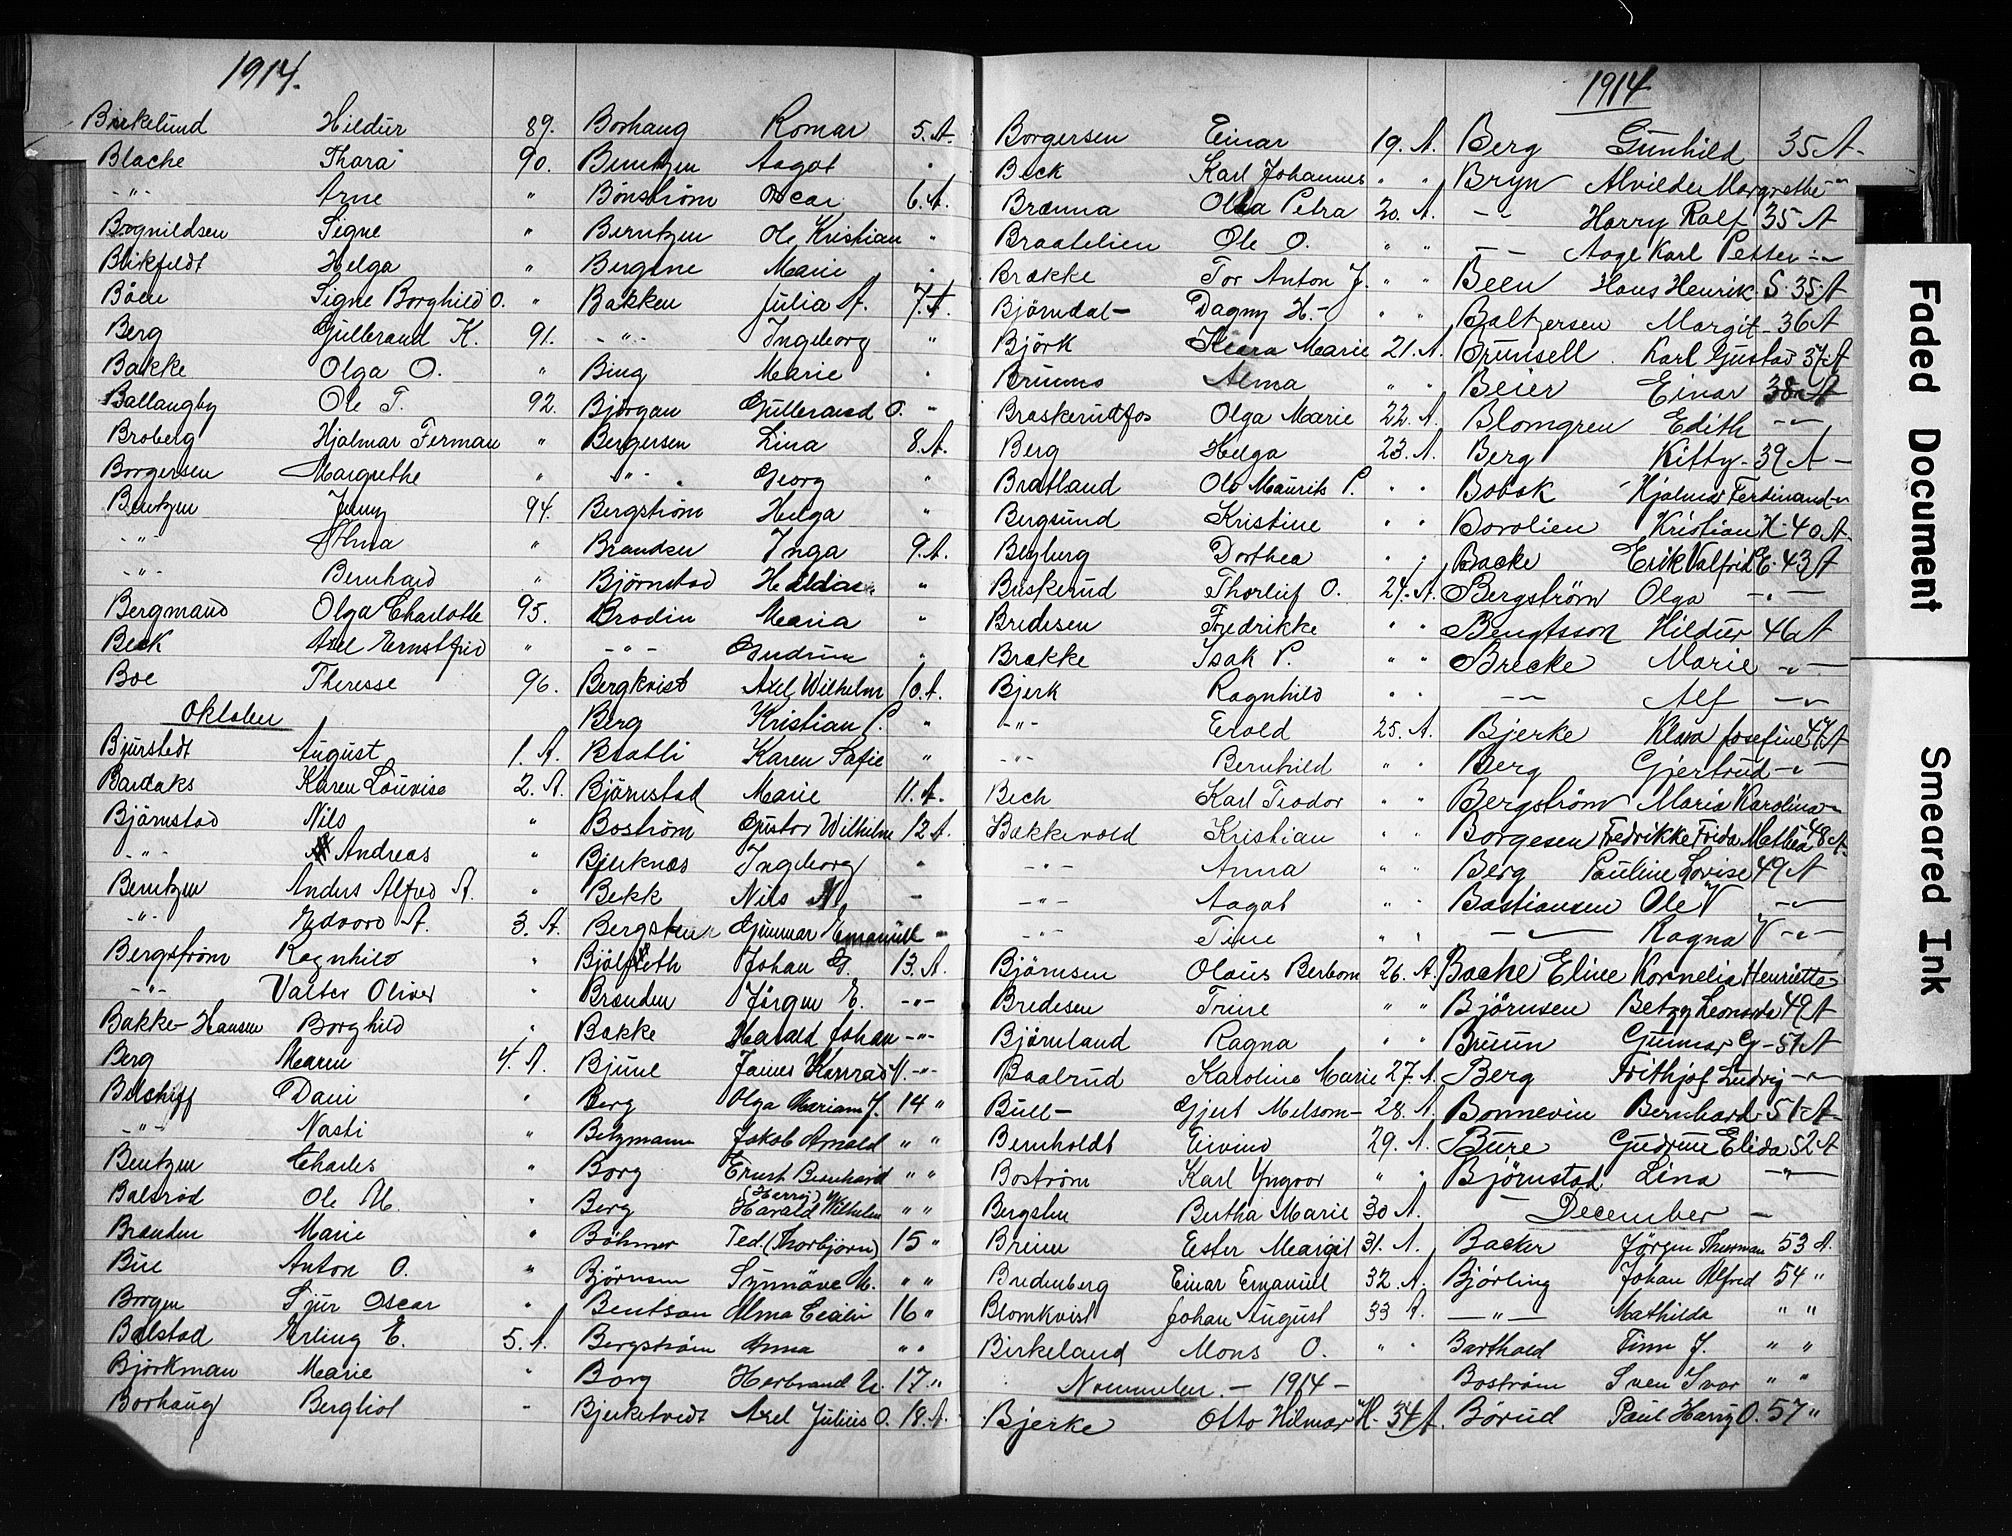 1914.
Birkelund Hildur 89.
Blache Thora 90.
-"- Arne "
Bognildsen Signe "
Birkfeldt Helga "
Böen Signe Borghild O. "
Berg Gulbrand K. 91.
Bakke Olga O. "
Ballangby Ole T. 92.
Broberg Hjalmar Ferman "
Borgersen Margrethe "
Berntzen Jenny 94.
-"- Alma "
-"- Bernhard "
Bergmand Olga Charlotte 95.
Beck Axel Ernstfrid "
Boe Theresse 96.
Oktober
Bjurstedt August 1. A.
Bardaks Karen Louvise 2. A.
Björnstad Nils "
-"- Andreas "
Berntzen Anders Alfred A. "
-"- Edvard A. 3. A.
Bergström Ragnhild "
-"- Valter Oliver "
Bakke-Hansen Borghild "
Berg Maren 4. A.
Belschiff Dani "
-"- Nasti "
Bentzen Charles "
Balsrød Ole M. "
Brænden Marie "
Bue Anton O. "
Borgen Sjur Oscar "
Bolstad Erling E. 5. A.
Björkman Marie "
Borhaug Bergliot "
Borhaug Romar 5. A.
Berntzen Aagot "
Bönström Oscar 6. A.
Berntzen Ole Kristian "
Bergene Marie "
Bakken Julia A. 7. A.
-"- Ingeborg "
Bing Marie "
Björgan Gulbrand O. "
Bergersen Lina 8. A.
-"- Georg "
Bergström Helga "
Brandsen Inga 9. A.
Björnstad Hilda "
Brodin Maria "
-"- Gudrun "
Bergkvist Axel Wilhelm 10. A.
Berg Kristian P. "
Bratli Karen Safie "
Björnstad Marie 11. A.
Boström Gustav Wilhelm 12 A.
Bjerknæs Ingeborg "
Bekk Nils N. -
Bergsten Gunnar Emanuel "
Bjølseth Johan G. 13. A.
Brænden Jörgen E. -"-
Bakke Harald Johan -"-
Bjune James Konrad M. -"-
Berg Olga Mariam J. 14 "
Betzmann Jakob Arnold " "
Borg Ernst Bernhard " "
Berg (Herry) Harald Wilhelm " "
Bøhmer Ted (Thorbjørn) 15 "
Bjørnsen Synnöve M. " "
Bentson Alma Cecilie 16 "
Bergstrøm Anna " "
Borg Herbrand N. 17 "
Bjerketvedt Axel Julius O. 18. A.
Borgersen Einar 19. A.
Beck Karl Johannes " "
Brænna Olea Petra 20. A.
Braatelien Ole O. " "
Brække Tor Anton J. " "
Björndal - Dagny H. - " "
Björk Klara Marie 21. A.
Brunns Alma " "
Braskerudfos Olga Marie 22. A.
Berg Helga 23. A.
Bratland Ole Maurits P. " "
Bergsund Kristine " "
Begberg Dorthea " "
Buskerud Thorleif O. 24. A.
Bredesen Fredrikke " "
Brække Isak P. " "
Bjerk Ragnhild " "
-"- Erold 25. A.
-"- Bernhild " "
Bech Karl Teodor " "
Bakkevold Kristian " "
-"- Anna " "
-"- Aagot " "
-"- Tine " "
Björnsen Olaus Berbom 26. A.
Bredesen Trine " "
Björnland Ragna " "
Baalrud Karoline Marie 27. A.
Bull - Gjert Melsom - 28. A.
Bernholdt Eivind 29. A.
Boström Karl Yngvar " "
Bergsten Bertha Marie 30 A.
Breien Ester Margit 31. A.
Bredenberg Einar Emanuel 32. A.
Blomkvist Johan August 33 A.
Birkeland Mons O. " "
Novembeer. - 1914 -
Bjerke Otto Hilmar H. 34 A.
1914
Berg Gunhild 35 A -
Bryn Alvilde Margrethe -"-
-"- Harry Ralf 35 A
- - Aage Karl Petter -"-
Been Hans Henrik S. 35 A
Baltzersen Margit - 36 A
Brunsell Karl Gustav 37 A
Beier Einar 38 A
Blomgren Edith -"-
Berg Kitty - 39 A -
Bobak Hjalmar Ferdinand -"-
Borolien Kristian H. 40 A.
Backe Erik Valfrid E. 43 A
Bergström Olga -"-
Bengtsson Hildur 46 A
Brecke Marie -"-
-"- Alf -"-
Bjerke Klara Josefine 47 A
Berg Gjertrud -"-
Bergström Maria Karolina -"-
Borgesen Fredrikke Frida Mathea 48 A.
Berg Pauline Lovise 49 A
Bastiansen Ole V -"-
-"- Ragna V -"-
Backe Eline Kornelia Henriette
Björnsen Betzy Leonarda 49 A
Bruun Gunnar G - 51 A
Berg Frithjof Ludvig -"-
Bonnevin Bernhard - 51 A -
Bure Gudrun Elida 52 A
Björnstad Lina -"-
December -
Backer Jörgen Thorman 53 A.
Bjørling Johan Alfred 54 "
-"- Mathilda " "
Barthold Finn J. " "
Boström Sven Ivar " "
Børud Paul Harry O. 57 "
Faded Document
Smeared Ink